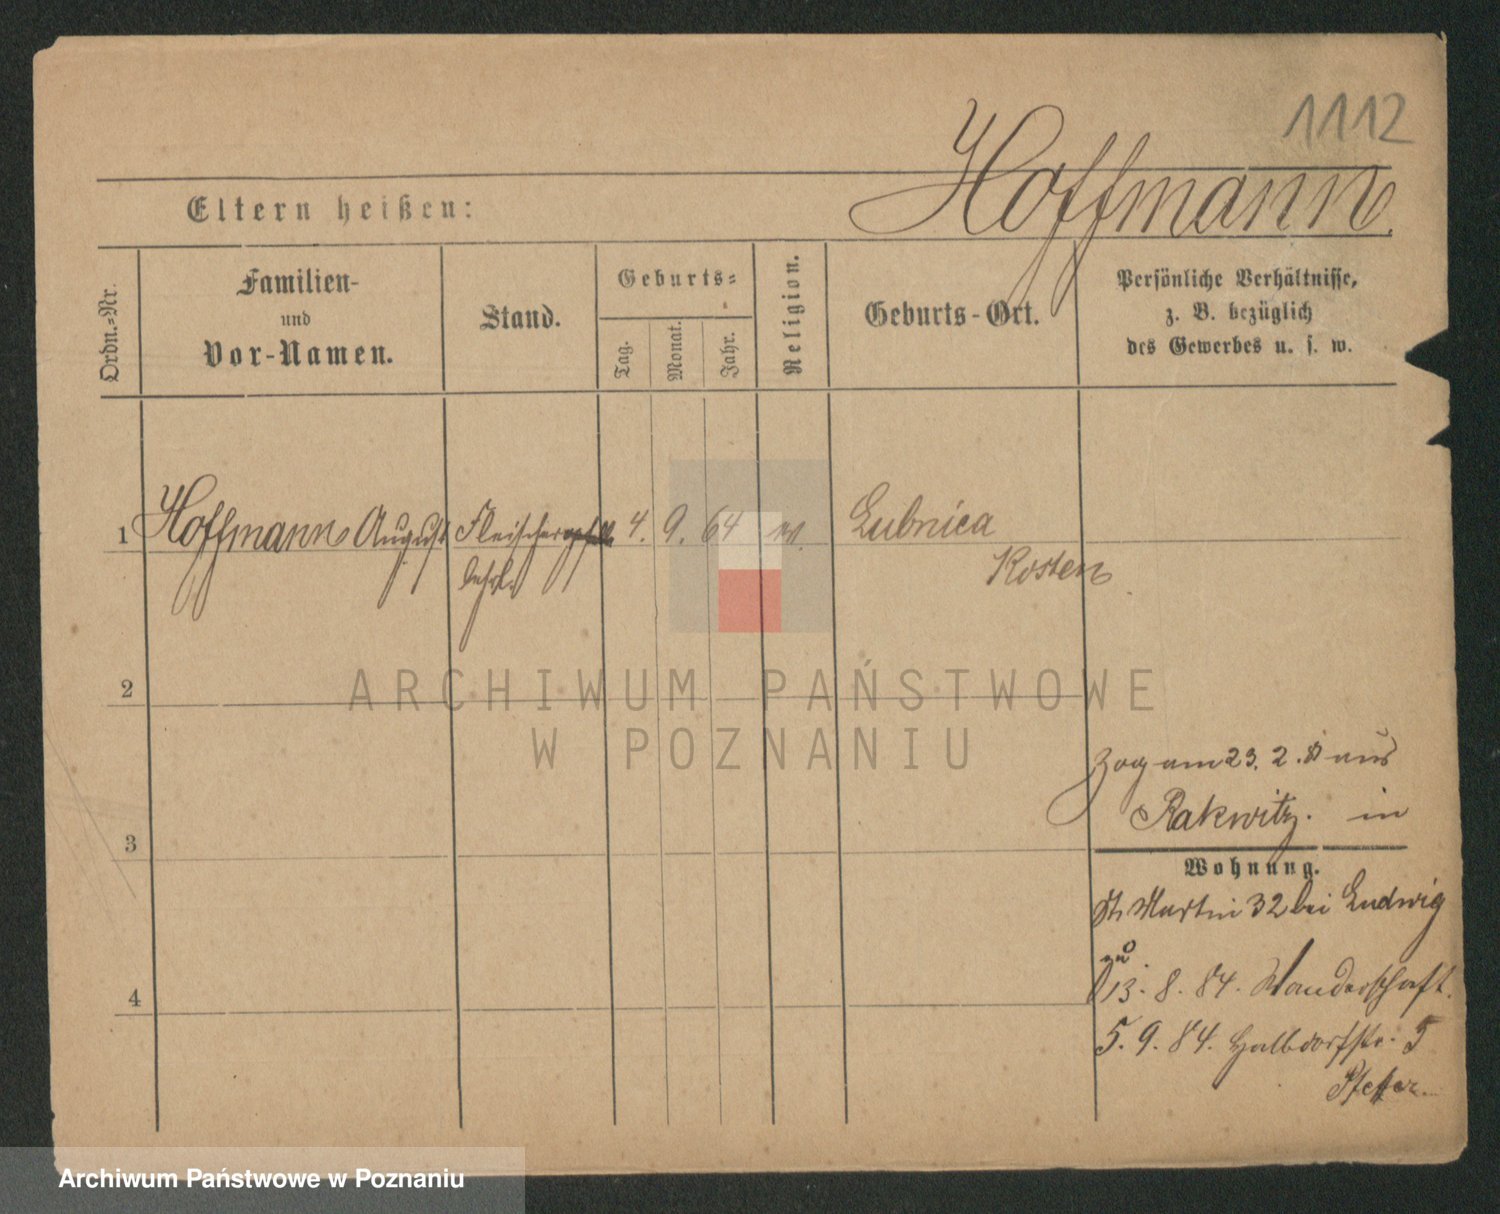 1112
Hoffmann
Eltern heißen:
Ordn.-Nr.
Familien-
und
Vor-Namen.
Stand.
Geburts-
Tag.
Monat.
Jahr.
Religion.
Geburts-Ort.
Persönliche Verhältnisse,
z. B. bezüglich
des Gewerbes u. s. w.
1 Hoffmann August Fleischer 4. 9. 64 Lubnica
Kosten
2
ARCHIWUM PAŃSTWOWE
W POZNANIU
Zog am 23. 2. aus
3 Rakwitz. in
Wohnung.
St Martin 32 bei Ludwig
4 13. 8. 84. Wanderschaft.
5. 9. 84. Halbdorfstr. 5
Archiwum Państwowe w Poznaniu